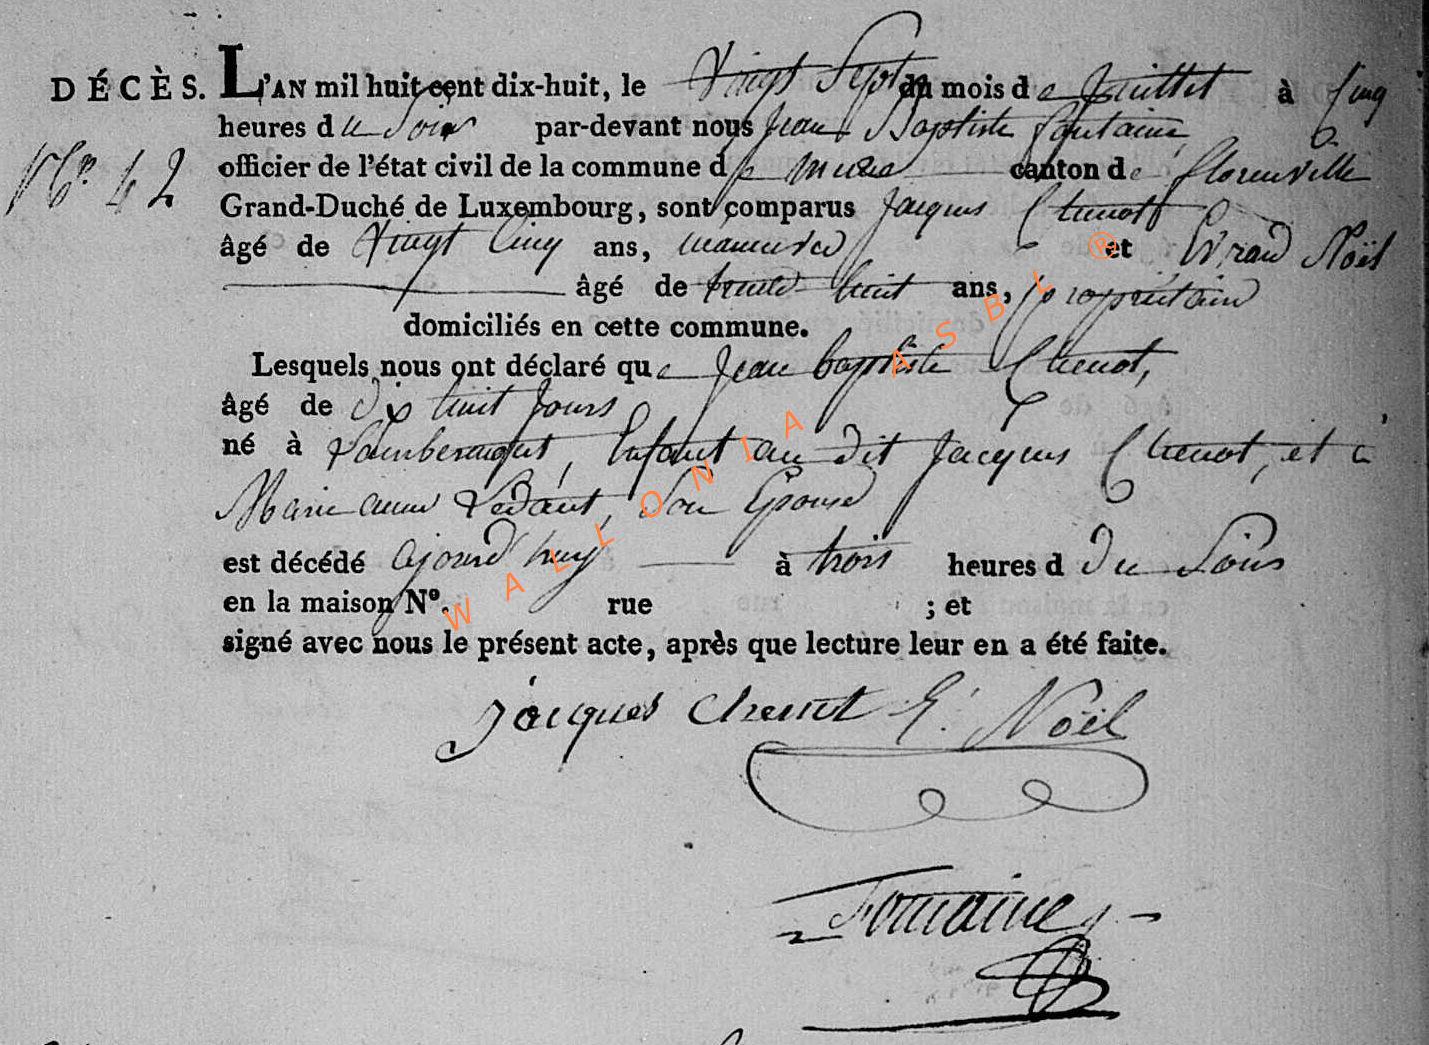 DÉCÈS. L'AN mil huit cent dix-huit, le Vingt Sept du mois de Juillet à Cinq
heures du Soir par-devant nous Jean Baptiste Fontaine,
N.º 42 officier de l'état civil de la commune de canton de florenville
Grand-Duché de Luxembourg, sont comparus Jacques Chenot
âgé de Vingt Cinq ans, manuvre et Evrard Noël
âgé de trente huit ans, proprietaire
domiciliés en cette commune.
Lesquels nous ont déclaré que Jean baptiste Chenot,
âgé de dix huit Jours
né à Lambermont, Enfant au dit Jacques Chenot, et à
Marie anne Ledant, Son Epouse
est décédé ajourd'huy à trois heures d du Soir
en la maison N°. rue ; et
signé avec nous le présent acte, après que lecture leur en a été faite.
WALLONIA ASBL ®
jacques chenot E. Noël
Fontaine